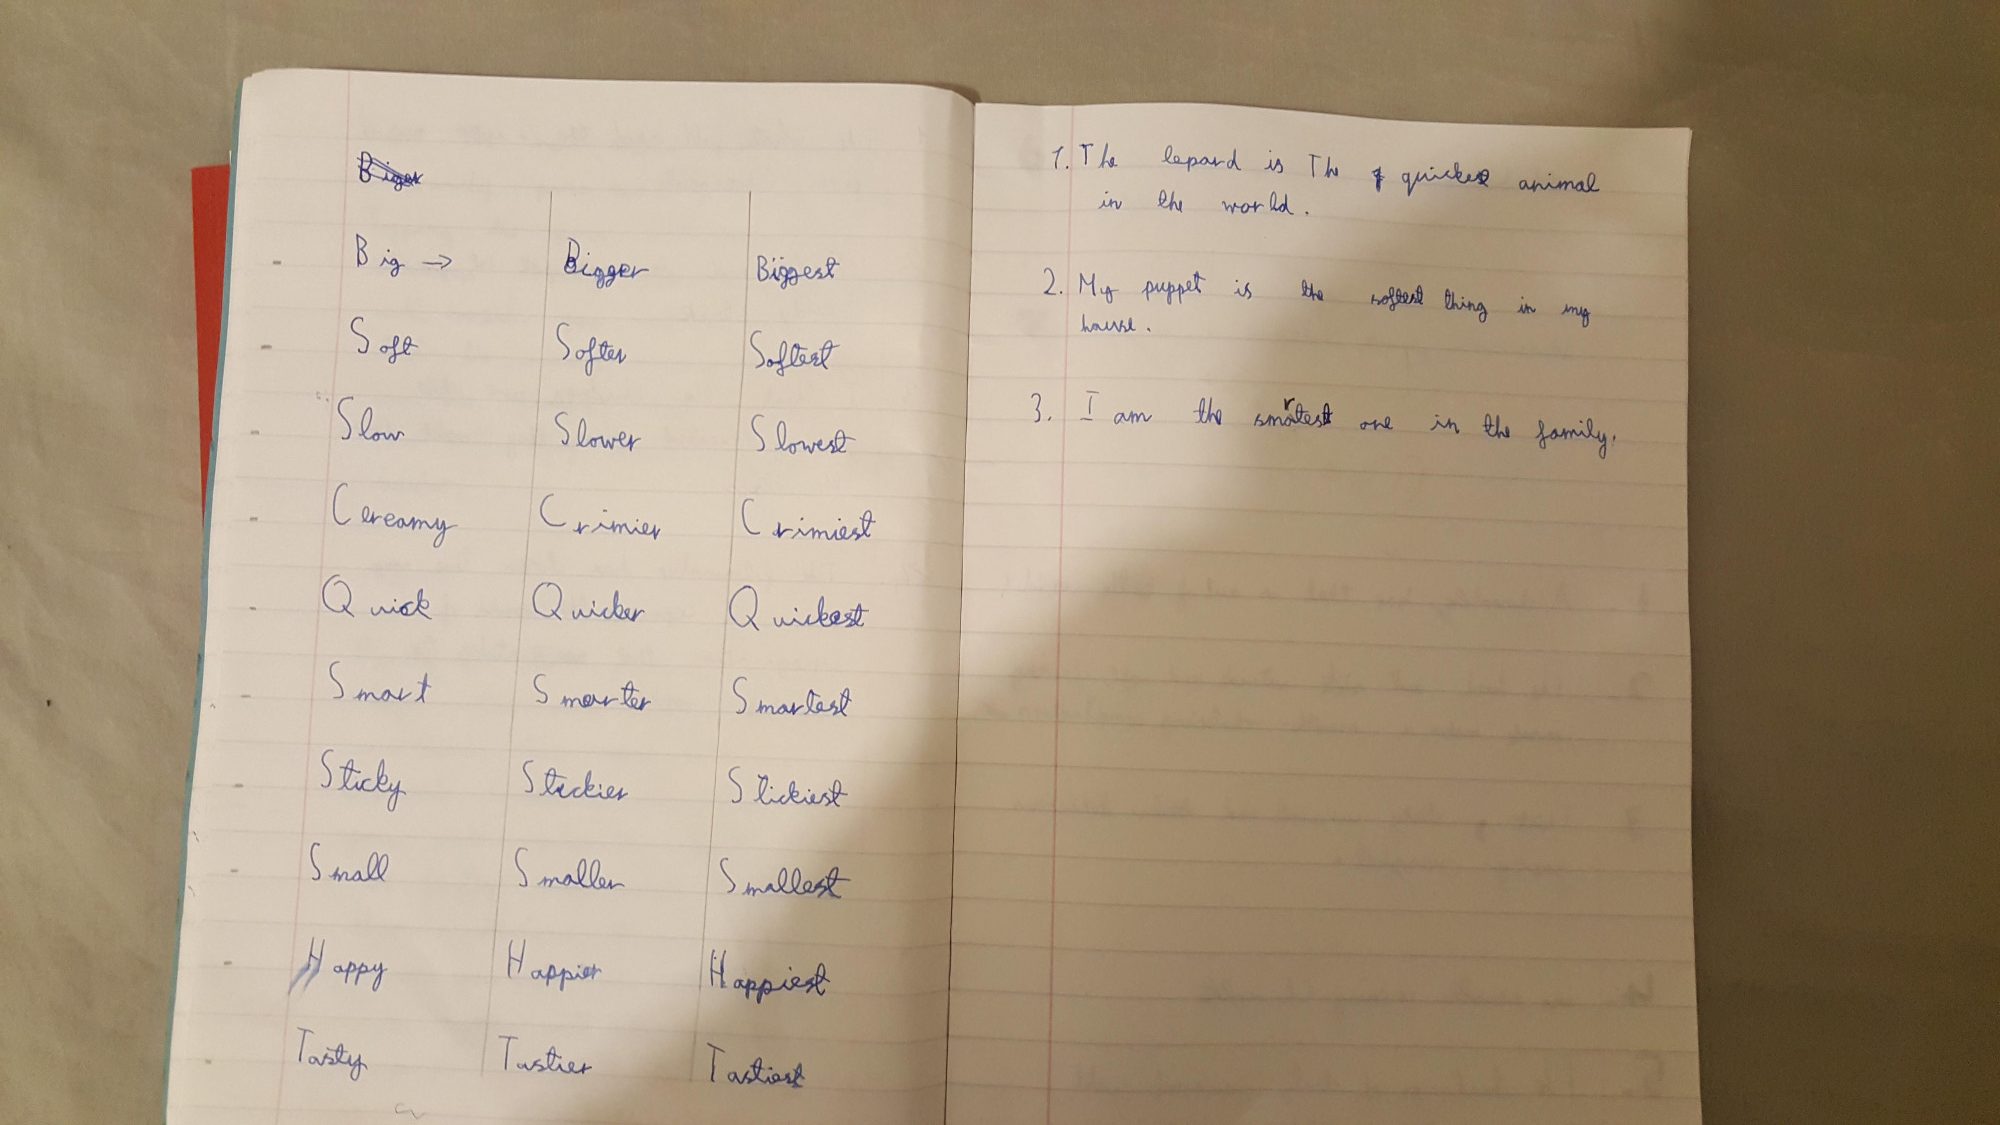 Big → Bigger Biggest
Soft Softer Softest
Slow Slower Slowest
Cereamy Crimier Crimiest
Quick Quicker Quickest
Smart Smarter Smartest
Sticky Stickier Stickiest
Small Smaller Smallest
Happy Happier Happiest
Tasty Tastier Tastiest
1. The lepard is The animal
in the world.
2. My puppet is the softest thing in my
house.
3. I am the smartest one in the family.